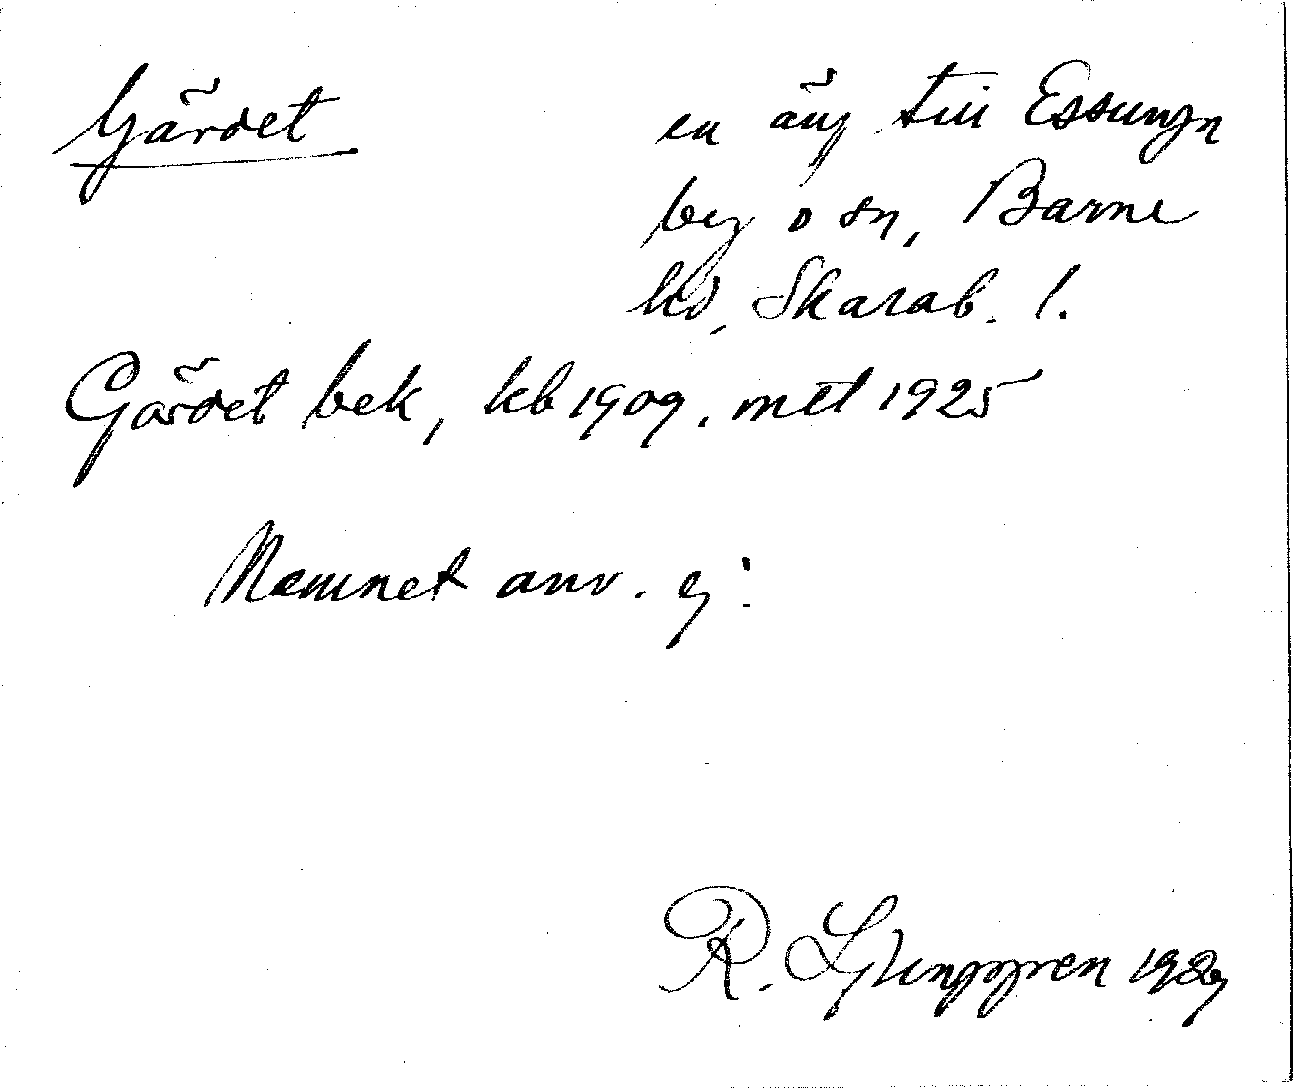 Gärdet
en äng till Essunga
by o sn, Barne
hd, Skarab. l.
Gärdet bek, kb 1909. mtl 1925
Namnet anv. ej.
R. Ljunggren 1929